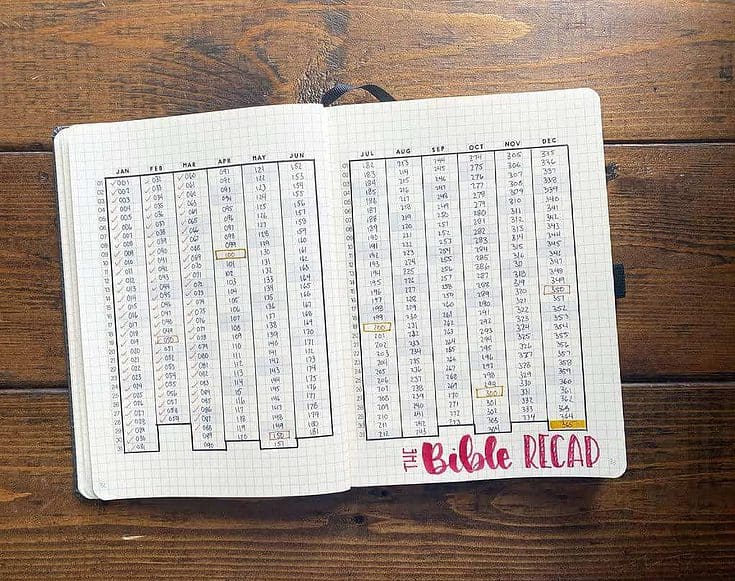 JAN FEB MAR APR MAY JUN
01 001 032 060 091 121 152
02 002 033 061 092 122 153
03 003 034 062 093 123 154
04 004 035 063 094 124 155
05 005 036 064 095 125 156
06 006 037 065 096 126 157
07 007 038 066 097 127 158
08 008 039 067 098 128 159
09 009 040 068 099 129 160
10 010 041 069 100 130 161
11 011 042 070 101 131 162
12 012 043 071 102 132 163
13 013 044 072 103 133 164
14 014 045 073 104 134 165
15 015 046 074 105 135 166
16 016 047 075 106 136 167
17 017 048 076 107 137 168
18 018 049 077 108 138 169
19 019 050 078 109 139 170
20 020 051 079 110 140 171
21 021 052 080 111 141 172
22 022 053 081 112 142 173
23 023 054 082 113 143 174
24 024 055 083 114 144 175
25 025 056 084 115 145 176
26 026 057 085 116 146 177
27 027 058 086 117 147 178
28 028 059 087 118 148 179
29 029 088 119 149 180
30 030 089 120 150 181
31 031 090 151
JUL AUG SEP OCT NOV DEC
01 182 213 244 274 305 335
02 183 214 245 275 306 336
03 184 215 246 276 307 337
04 185 216 247 277 308 338
05 186 217 248 278 309 339
06 187 218 249 279 310 340
07 188 219 250 280 311 341
08 189 220 251 281 312 342
09 190 221 252 282 313 343
10 191 222 253 283 314 344
11 192 223 254 284 315 345
12 193 224 255 285 316 346
13 194 225 256 286 317 347
14 195 226 257 287 318 348
15 196 227 258 288 319 349
16 197 228 259 289 320 350
17 198 229 260 290 321 351
18 199 230 261 291 322 352
19 200 231 262 292 323 353
20 201 232 263 293 324 354
21 202 233 264 294 325 355
22 203 234 265 295 326 356
23 204 235 266 296 327 357
24 205 236 267 297 328 358
25 206 237 268 298 329 359
26 207 238 269 299 330 360
27 208 239 270 300 331 361
28 209 240 271 301 332 362
29 210 241 272 302 333 363
30 211 242 273 303 334 364
31 212 243 304 365
THE Bible RECAP